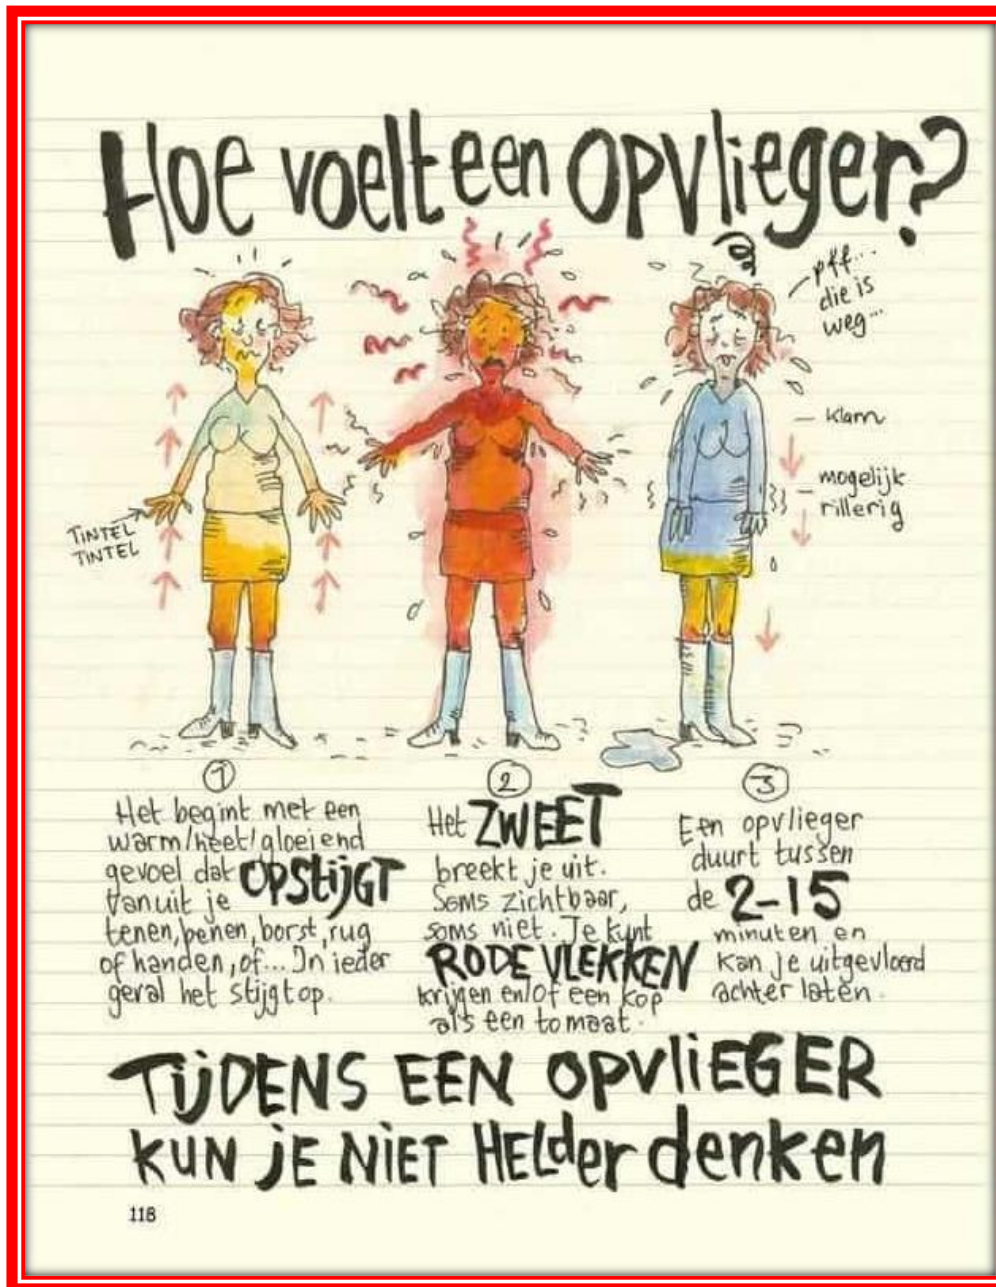 Hoe voelt een opvlieger?
pff...
die is
weg...
klam
mogelijk
rillerig
TINTEL
TINTEL
1
Het begint met een
warm/heet/gloeiend
gevoel dat OPSTIJGT
vanuit je
tenen, benen, borst, rug
of handen, of... In ieder
geval het stijgt op.
2
Het ZWEET
breekt je uit.
Soms zichtbaar,
soms niet. Je kunt
RODE VLEKKEN
krijgen en/of een kop
als een tomaat.
3
Een opvlieger
duurt tussen
de 2-15
minuten en
kan je uitgevloerd
achter laten.
TIJDENS EEN OPVLIEGER
KUN JE NIET HELDER denken
118